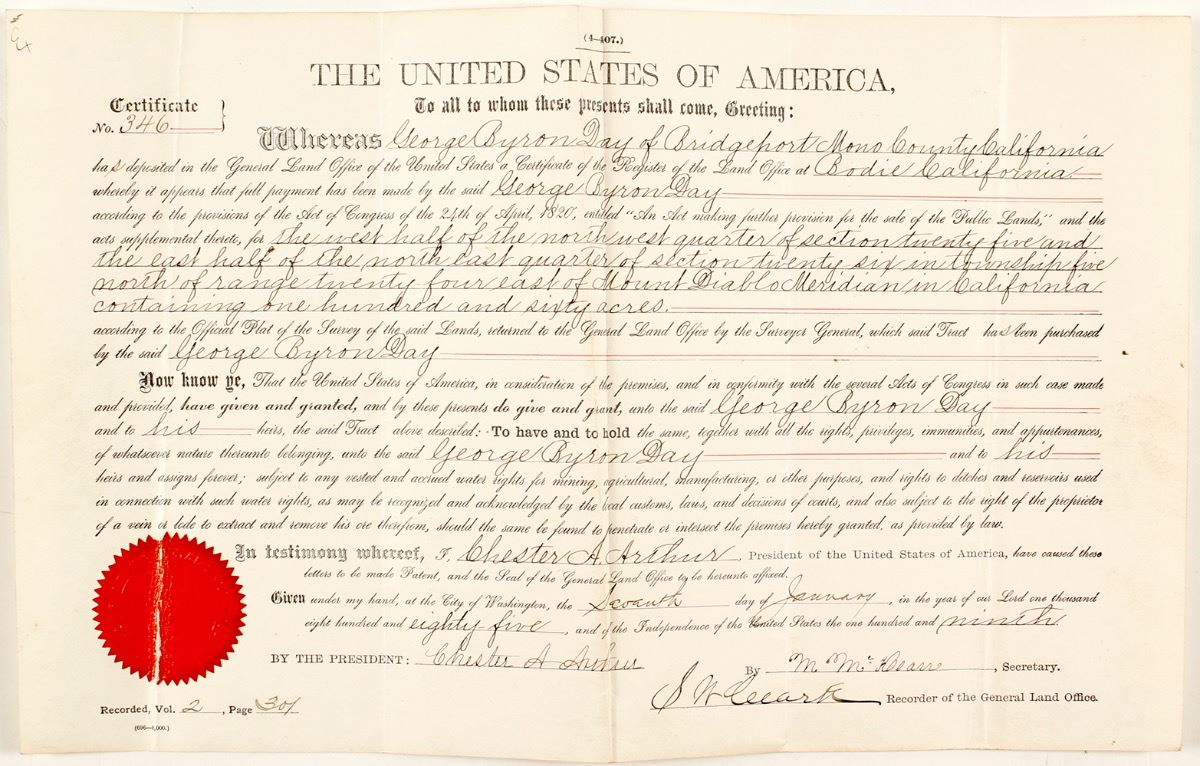 (4-407.)
THE UNITED STATES OF AMERICA,
Certificate
No. 346
To all to whom these presents shall come, Greeting:
Whereas George Byron Day of Bridgeport Mono County California
has deposited in the General Land Office of the United States a Certificate of the Register of the Land Office at Bodie California
whereby it appears that full payment has been made by the said George Byron Day
according to the provisions of the Act of Congress of the 24th of April, 1820, entitled "An Act making further provision for the sale of the Public Lands," and the
acts supplemental thereto, for the west half of the north west quarter of section twenty five and
the east half of the north east quarter of section twenty six in township five
north of range twenty four east of Mount Diablo Meridian in California
containing one hundred and sixty acres.
according to the Official Plat of the Survey of the said Lands, returned to the General Land Office by the Surveyor General, which said Tract has been purchased
by the said George Byron Day
Now know ye, That the United States of America, in consideration of the premises, and in conformity with the several Acts of Congress in such case made
and provided, have given and granted, and by these presents do give and grant, unto the said George Byron Day
and to his heirs, the said Tract above described: To have and to hold the same, together with all the rights, privileges, immunities, and appurtenances,
of whatsoever nature thereunto belonging, unto the said George Byron Day and to his
heirs and assigns forever; subject to any vested and accrued water rights for mining, agricultural, manufacturing, or other purposes, and rights to ditches and reservoirs used
in connection with such water rights, as may be recognized and acknowledged by the local customs, laws, and decisions of courts, and also subject to the right of the proprietor
of a vein or lode to extract and remove his ore therefrom, should the same be found to penetrate or intersect the premises hereby granted, as provided by law.
In testimony whereof, I, Chester A. Arthur President of the United States of America, have caused these
letters to be made Patent, and the Seal of the General Land Office to be hereunto affixed.
Given under my hand, at the City of Washington, the Seventh day of January, in the year of our Lord one thousand
eight hundred and eighty five, and of the Independence of the United States the one hundred and ninth
BY THE PRESIDENT: Chester A Arthur
By M McKean, Secretary.
S W Clark Recorder of the General Land Office.
Recorded, Vol. 2, Page 301